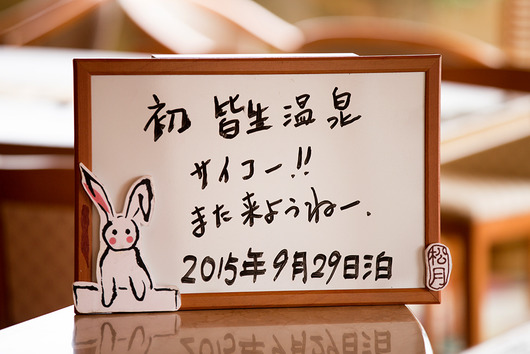 初 皆生温泉
サイコー!!
また来ようねー.
2015年9月29日泊
松月